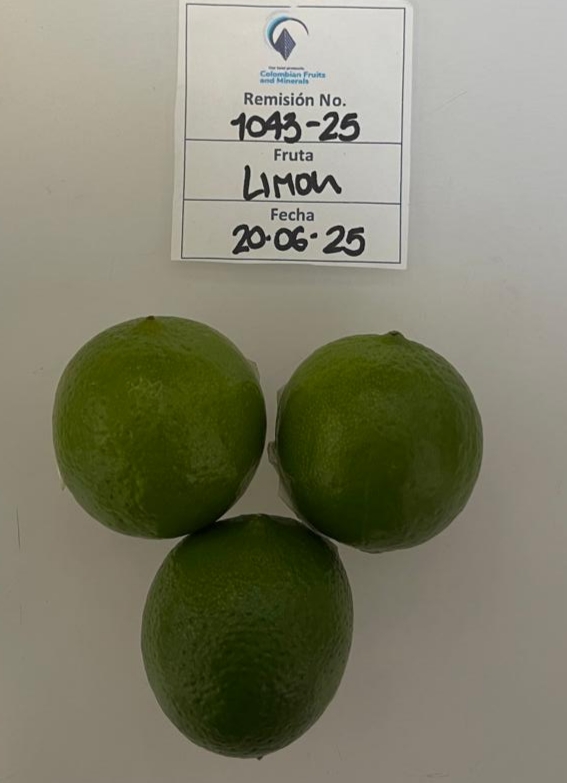 Colombian Fruits
and Minerals
Remisión No.
1043-25
Fruta
LIMON
Fecha
20-06-25